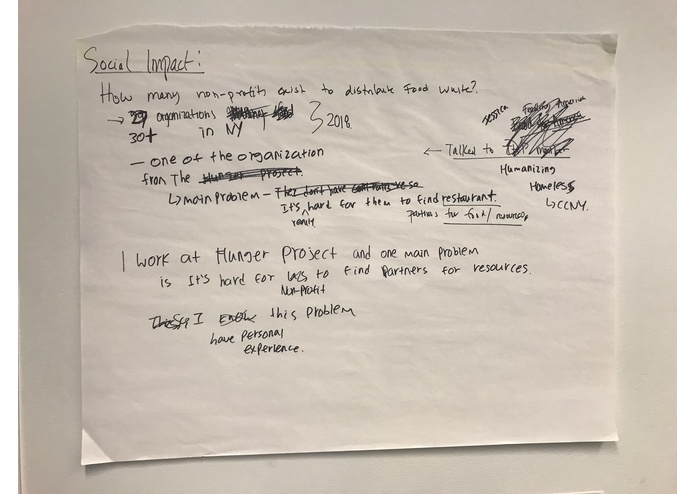 Social Impact:
How many non-profits exist to distribute food waste?
→ 29 organizations
30+ in NY } 2018
Jessica
Feeding America
← Talked to
Humanizing
Homeless
↳ CCNY.
— one of the organization
from The Hunger Project.
↳ main problem – They don't have
It's really hard for them to find restaurant.
partners for food/resources
I work at Hunger Project and one main problem
is It's hard for us to find partners for resources.
Non-profit
I know this problem
have personal
experience.